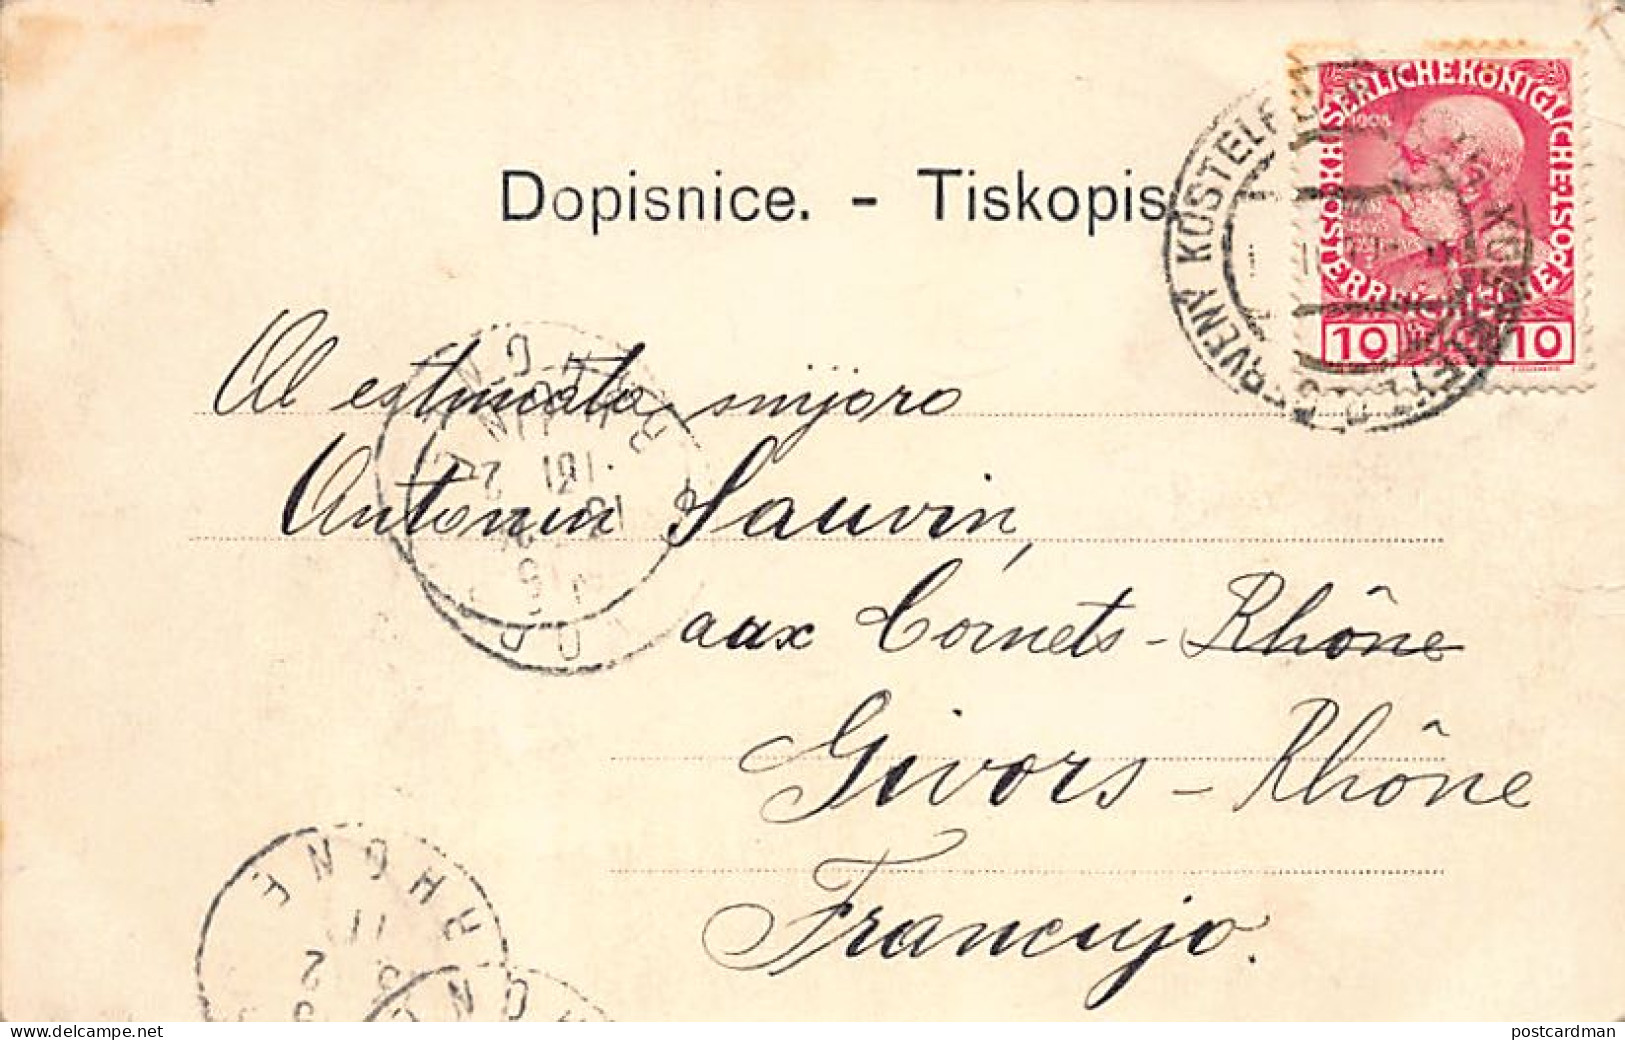 Dopisnice. - Tiskopis
KAISERLICHEKÖNIGLICHE
ÖSTERREICHISCHE POST
1908
10 10
ČERVENY KOSTELEC
Al estimata sinjoro
Antonin Sauvin,
aux Cornets - Rhône
Givors - Rhône
Francujo.
RHONE
RHONE
www.delcampe.net
postcardman